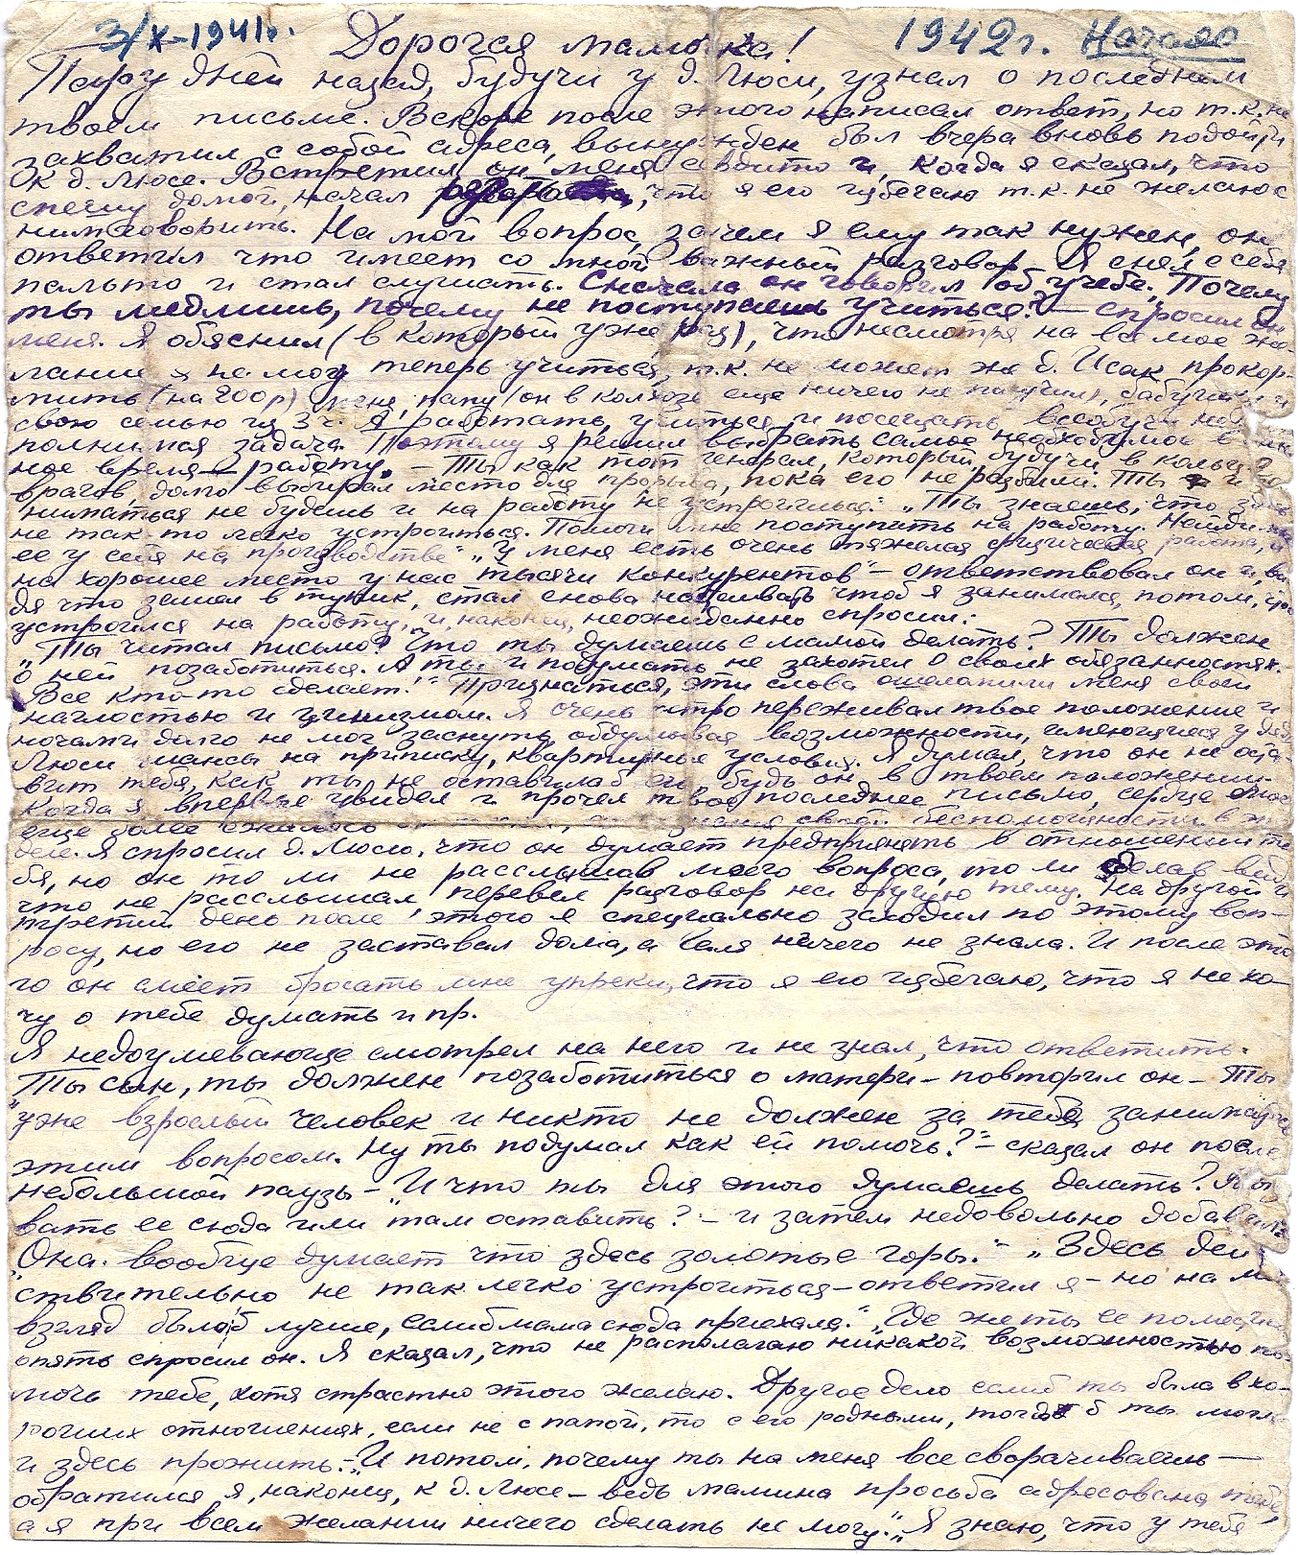 3/X-1941г. 1942г. Начало
Дорогая мамочка!
Пару дней назад, будучи у д. Люси, узнал о последнем
твоем письме. Вскоре после этого написал ответ, но т.к. не
захватил с собой адреса, вынужден был вчера вновь подойти
к д. Люсе. Встретил он меня сердито и, когда я сказал, что
спешу домой, начал что я его избегаю т.к. не желаю с
ним говорить. На мой вопрос, зачем я ему так нужен, он
ответил что имеет со мной важный разговор. Я снял с себя
пальто и стал слушать. Сначала он говорил об учебе. „Почему
ты медлишь, почему не поступаешь учиться?" — спросил он
меня. Я обяснил (в который уже раз), что несмотря на все мое же-
лание я не могу теперь учиться, т.к. не может же д. Исак прокор-
мить (на 800р) меня, папу (он в колхозе еще ничего не получил), бабушку и
свою семью из 3 ч. А работать, учиться и посещать всеобуч
задача. Поэтому я решил выбрать самое необходимое в
ное время — работу. — Ты как тот генерал, который, будучи в кольце
врагов, долго выбирал место для прорыва, пока его не разбили. Ты и
ниматься не будешь и на работу не устроишься." „Ты знаешь, что здесь
не так-то легко устроиться. Помоги мне поступить на работу. Найди
ее у себя на производстве" „У меня есть очень тяжелая физическая работа, а
на хорошее место у нас тысячи конкурентов" — ответствовал он и, ви-
дя что зашел в тупик, стал снова чтоб я занимался, потом, чтоб
устроился на работу, и, наконец, неожиданно спросил:
„Ты читал письмо? Что ты думаешь с мамой делать? Ты должен
о ней позаботиться. А ты и подумать не захотел о своих обязанностях.
Все кто-то сделает!" Признаться, эти слова ошеломили меня своей
наглостью и цинизмом. Я очень остро переживал твое положение и
ночами долго не мог заснуть, обдумывая возможности, имеющиеся у дяди
Люси шансы на приписку, квартирные условия. Я думал, что он не оста-
вит тебя, как ты не оставила б его будь он в твоем положении.
Когда я впервые увидел и прочел твое последнее письмо, сердце мое
еще более сжалось своей беспомощности в этом
деле. Я спросил д. Люсю, что он думает предпринять в отношении те-
бя, но он то ли не расслышав моего вопроса, то ли сделав вид,
что не расслышал, перевел разговор на другую тему. На другой и
третий день после этого я специально заходил по этому воп-
росу, но его не заставал дома, а Валя ничего не знала. И после это-
го он смеет бросать мне упреки, что я его избегаю, что я не хо-
чу о тебе думать и пр.
Я недоумевающе смотрел на него и не знал, что ответить.
„Ты сын, ты должен позаботиться о матери — повторил он — Ты
уже взрослый человек и никто не должен за тебя заниматься
этим вопросом. Ну ты подумал как ей помочь?" — сказал он после
небольшой паузы — „И что ты для этого думаешь делать?
вать ее сюда или там оставить?" — и затем недовольно добавил:
„Она вообще думает что здесь золотые горы." — „Здесь дей-
ствительно не так легко устроиться — ответил я — но на мой
взгляд было б лучше, если б мама сюда приехала." „Где же ты ее поместишь
опять спросил он. Я сказал, что не располагаю никакой возможностью по-
мочь тебе, хотя страстно этого желаю. Другое дело если б ты была в хо-
роших отношениях, если не с папой, то с его родными, тогда б ты могла
и здесь прожить. — „И потом, почему ты на меня все сворачиваешь —
обратился я, наконец, к д. Люсе — ведь мамина просьба адресована тебе,
а я при всем желании ничего сделать не могу." „Я знаю, что у тебя